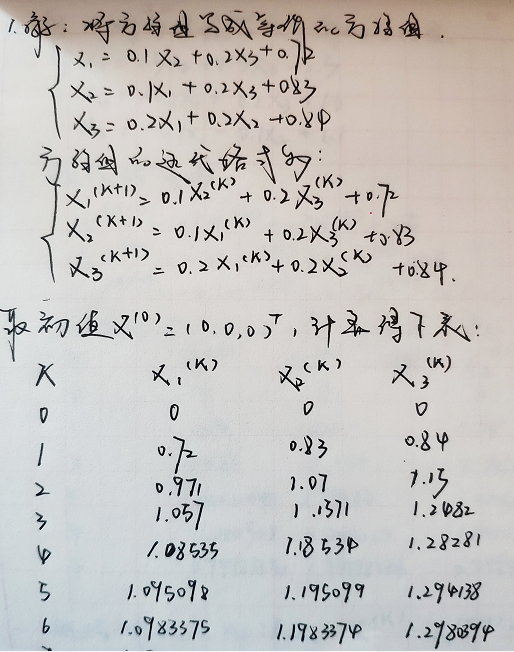 1.解：将方程组写成等价的方程组.
x₁ = 0.1x₂ + 0.2x₃ + 0.72
x₂ = 0.1x₁ + 0.2x₃ + 0.83
x₃ = 0.2x₁ + 0.2x₂ + 0.84
方程组的迭代格式为：
x₁^(K+1) = 0.1x₂^(K) + 0.2x₃^(K) + 0.72
x₂^(K+1) = 0.1x₁^(K) + 0.2x₃^(K) + 0.83
x₃^(K+1) = 0.2x₁^(K) + 0.2x₂^(K) + 0.84.
取初值x^(0) = (0,0,0)^T, 计算得下表：
K x₁^(K) x₂^(K) x₃^(K)
0 0 0 0
1 0.72 0.83 0.84
2 0.971 1.07 1.15
3 1.057 1.1571 1.2482
4 1.08535 1.18534 1.28281
5 1.095098 1.195099 1.294138
6 1.0983375 1.1983374 1.2980394